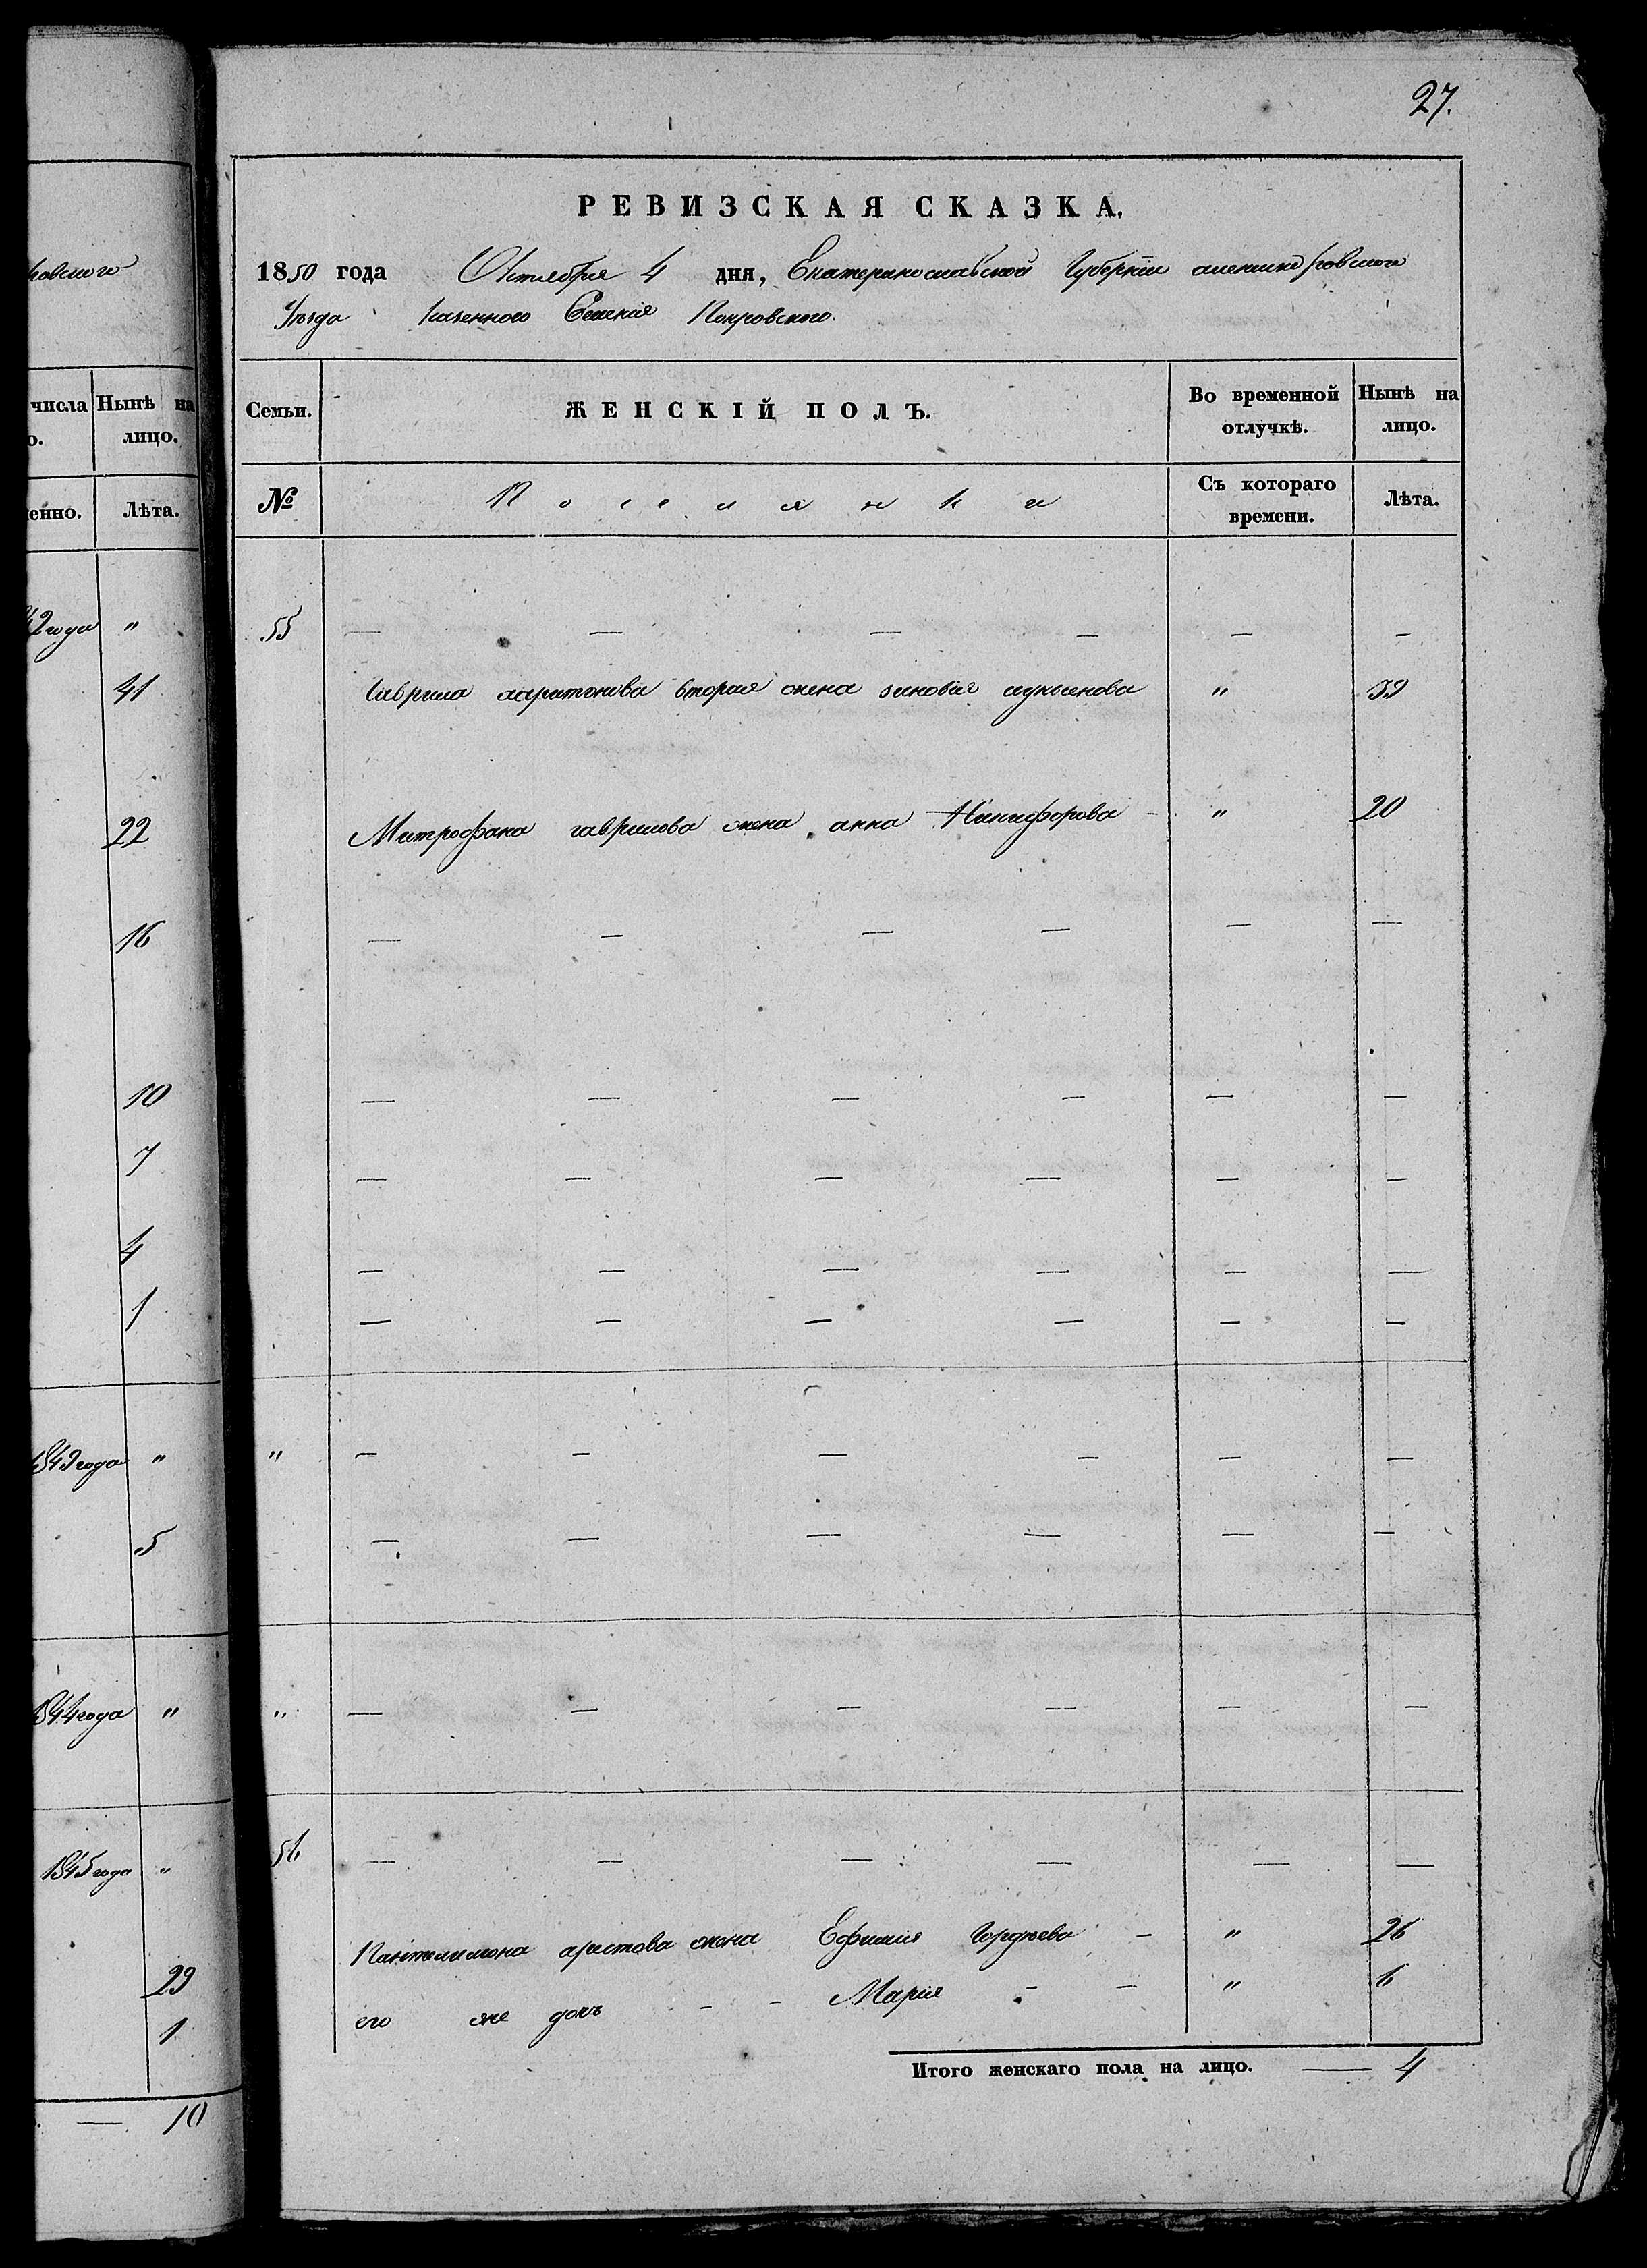 27.
РЕВИЗСКАЯ СКАЗКА.
1850 года Октября 4 дня, Екатеринославской Губернии александровского
Уѣзда казенного Селения Покровского.
Семьи. ЖЕНСКІЙ ПОЛЪ. Во временной отлучкѣ. Нынѣ на лицо.
№ Поселянки Съ котораго времени. Лѣта.
55 — — — — — —
Гаврила харитонова вторая жена зиновия " 39
Митрофана гаврилова жена анна Никифорова - " 20
— — — — — —
— — — — — —
— — — — — —
— — — — — —
— — — — — —
" — — — — — —
— — — — — —
" — — — — — —
56 — — — — — —
Пантелимона аристова жена Ефимия Гордѣева - " 26
его же дочь - - Мария - - " 6
Итого женскаго пола на лицо. — 4
ковского
числа Нынѣ на
о. лицо.
енно. Лѣта.
42 года "
41
22
16
10
7
4
1
1849 года "
5
1844 года "
1845 года "
29
1
. — 10